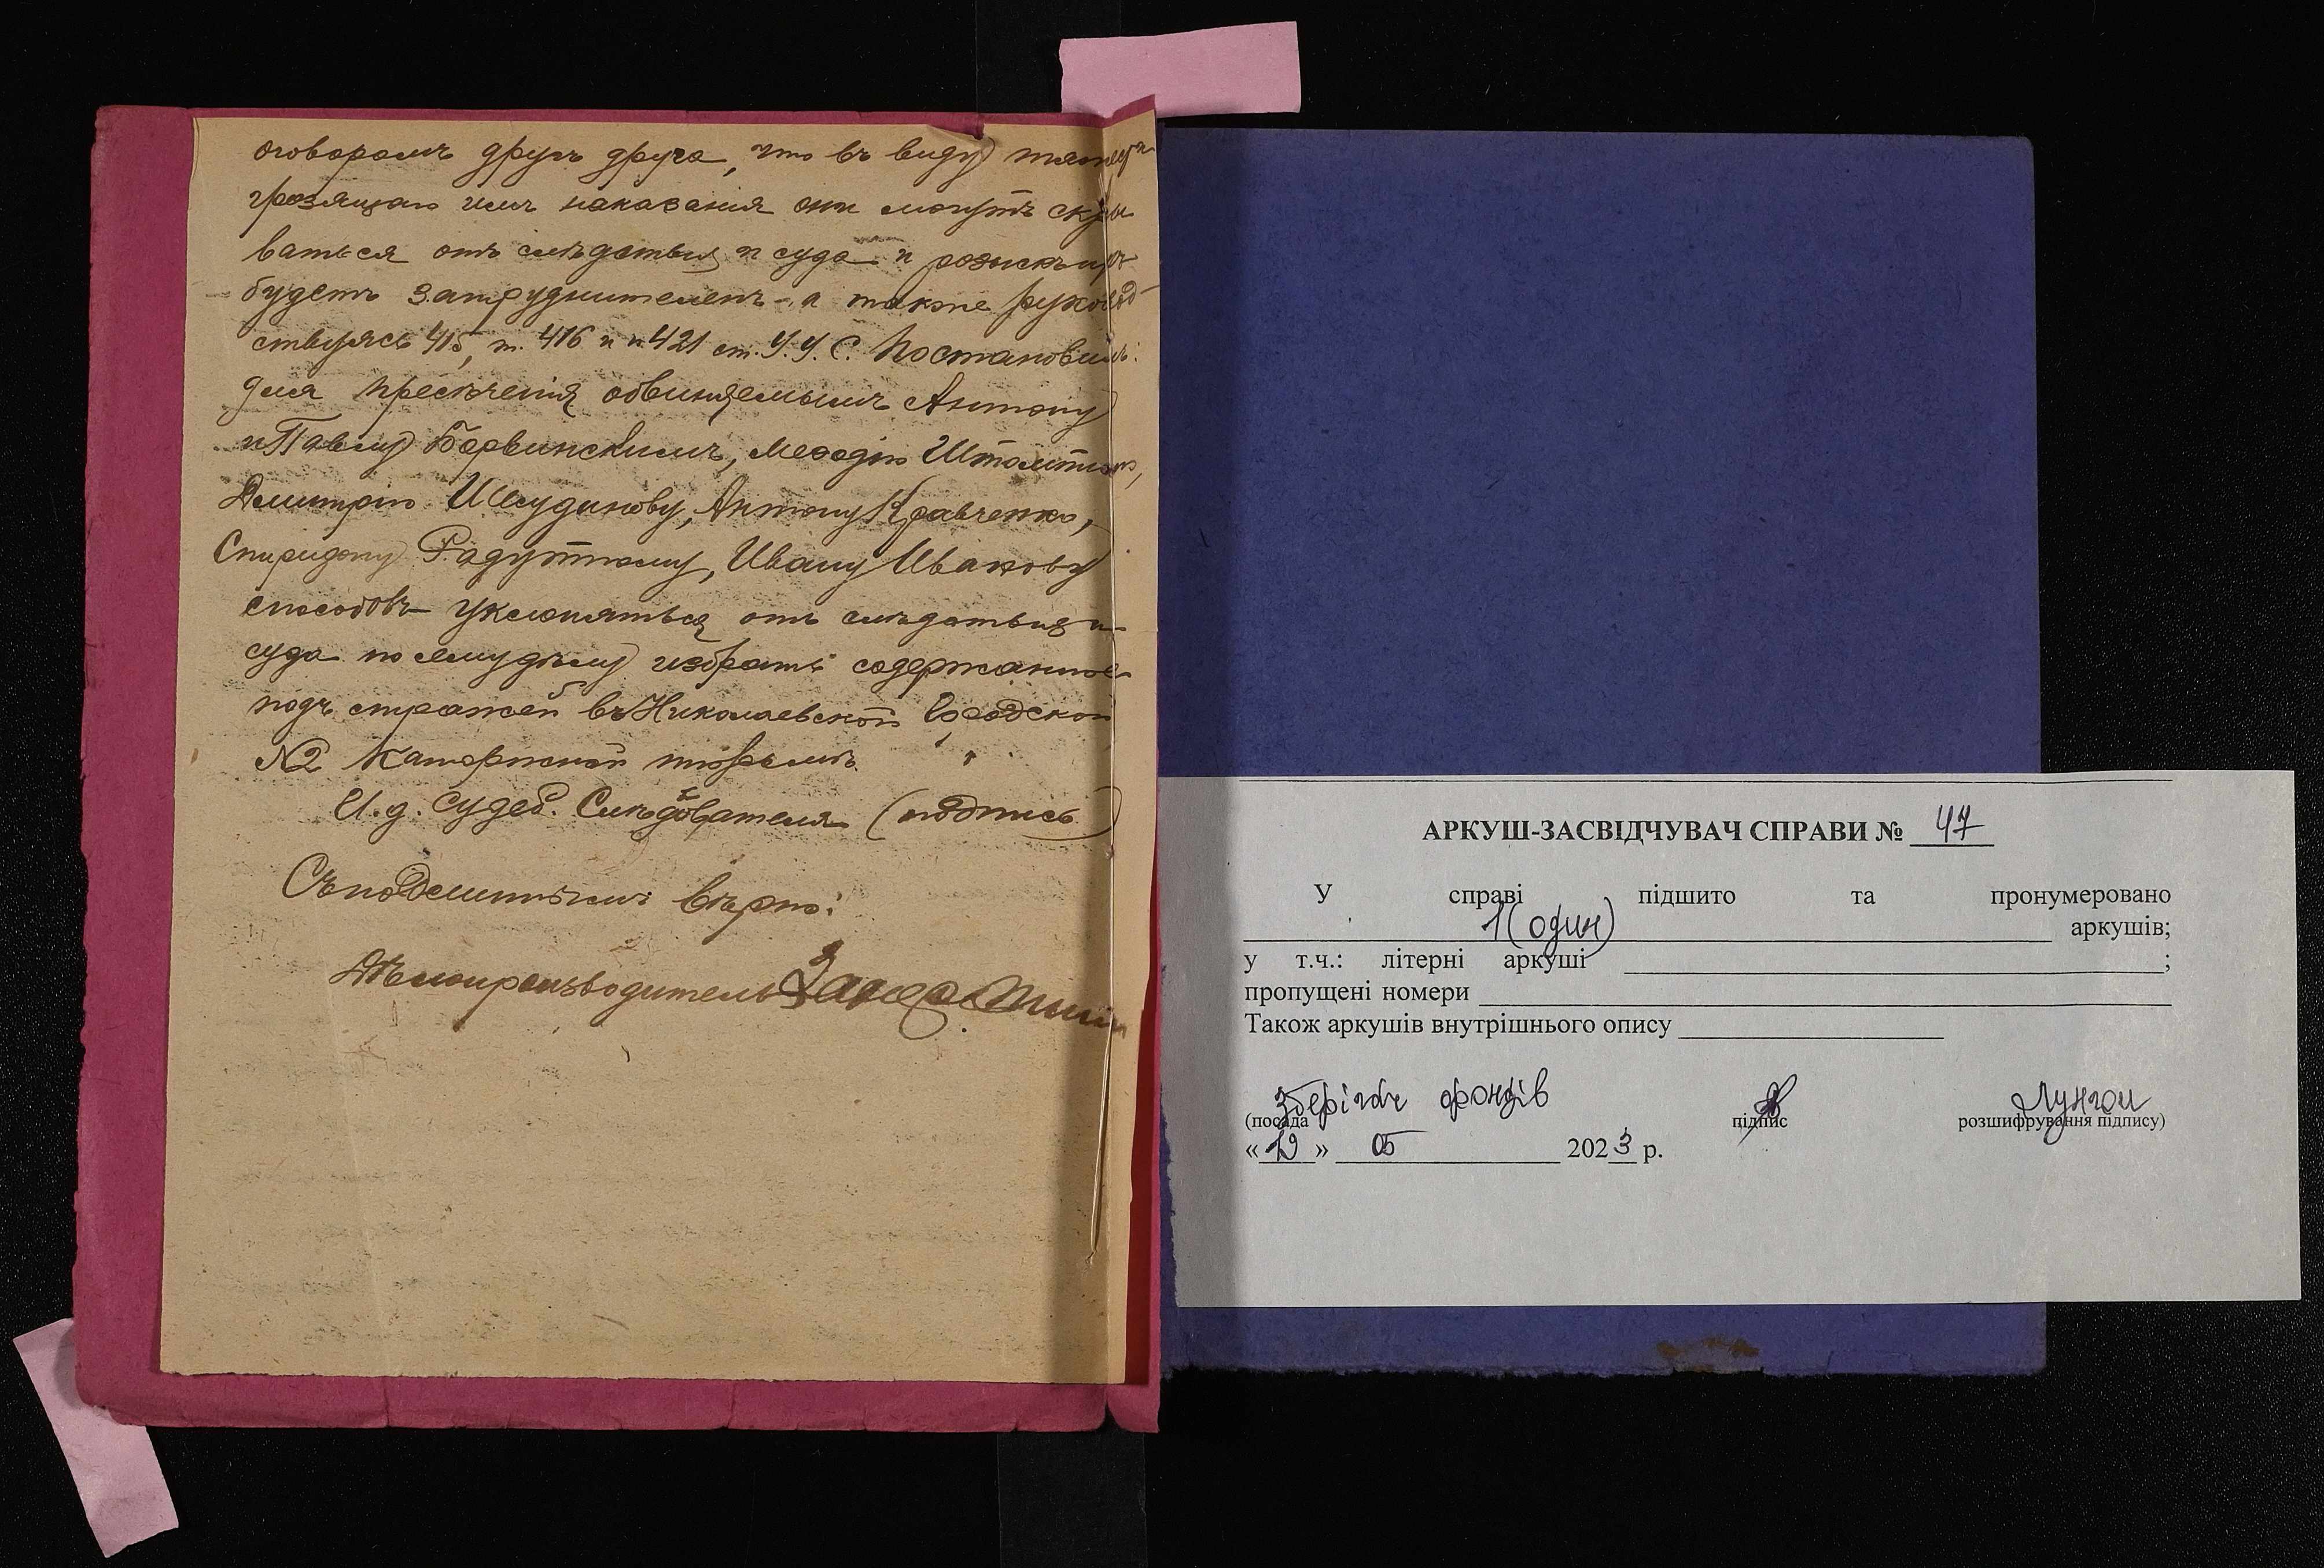 оговоромъ другъ друга, что въ виду
грозящаго имъ наказанія они могутъ скры
ваться отъ слѣдствія и суда и розыскъ
будетъ затруднителенъ - а также руковод
ствуясь 415, 416 и 421 ст. У. У. С. Постановилъ:
для пресѣченія обвиняемымъ Антону
и Павлу Барвинскимъ, Меѳодію
Дмитрію Шелудикову, Антону Кравченко,
Спиридону Ивану Иванову
способовъ уклоняться отъ слѣдствія и
суда по сему дѣлу избрать содержаніе
подъ стражей въ Николаевской Городской
№2 Каторжной тюрьмѣ.
И. д. Судеб. Слѣдователя (подпись)
Съ подлиннымъ вѣрно:
Дѣлопроизводитель
АРКУШ-ЗАСВІДЧУВАЧ СПРАВИ № 47
У справі підшито та пронумеровано
1 (один) аркушів;
у т.ч.: літерні аркуші ;
пропущені номери
Також аркушів внутрішнього опису
зберігач фондів
(посада підпис розшифрування підпису)
« » 05 2023 р.